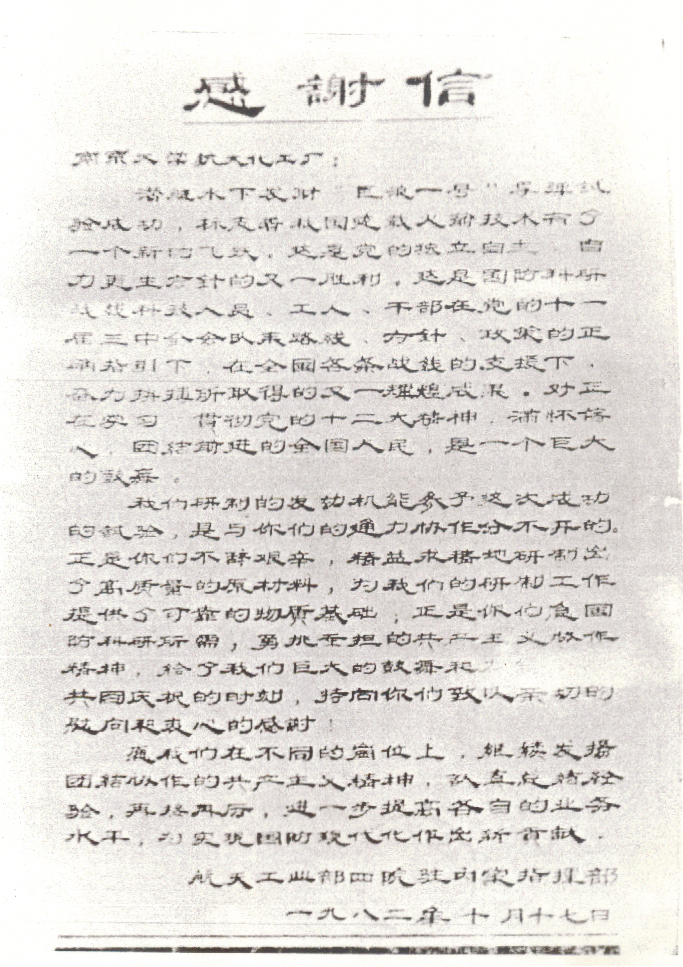 感謝信
南京大学航天化工厂：
潜艇水下发射“巨浪一号”导弹试
验成功，标志着我国运载火箭技术有了
一个新的飞跃，这是党的独立自主、自
力更生方针的又一胜利，这是国防科研
战线科技人员、工人、干部在党的十一
届三中全会以来路线、方针、政策的正
确指引下，在全国各条战线的支援下，
奋力拼搏所取得的又一辉煌成果。对正
在学习、贯彻党的十二大精神，满怀信
心，团结前进的全国人民，是一个巨大
的鼓舞。
我们研制的发动机能参予这次成功
的试验，是与你们的通力协作分不开的。
正是你们不辞艰辛，精益求精地研制出
了高质量的原材料，为我们的研制工作
提供了可靠的物质基础；正是你们急国
防科研所需，勇挑重担的共产主义协作
精神，给了我们巨大的鼓舞和
共同庆祝的时刻，特向你们致以亲切的
慰问和衷心的感谢！
愿我们在不同的岗位上，继续发揚
团结协作的共产主义精神，认真总结经
验，再接再厉，进一步提高各自的业务
水平，为实现国防现代化作出新贡献．
航天工业部四院驻内蒙指揮部
一九八二年十月十七日